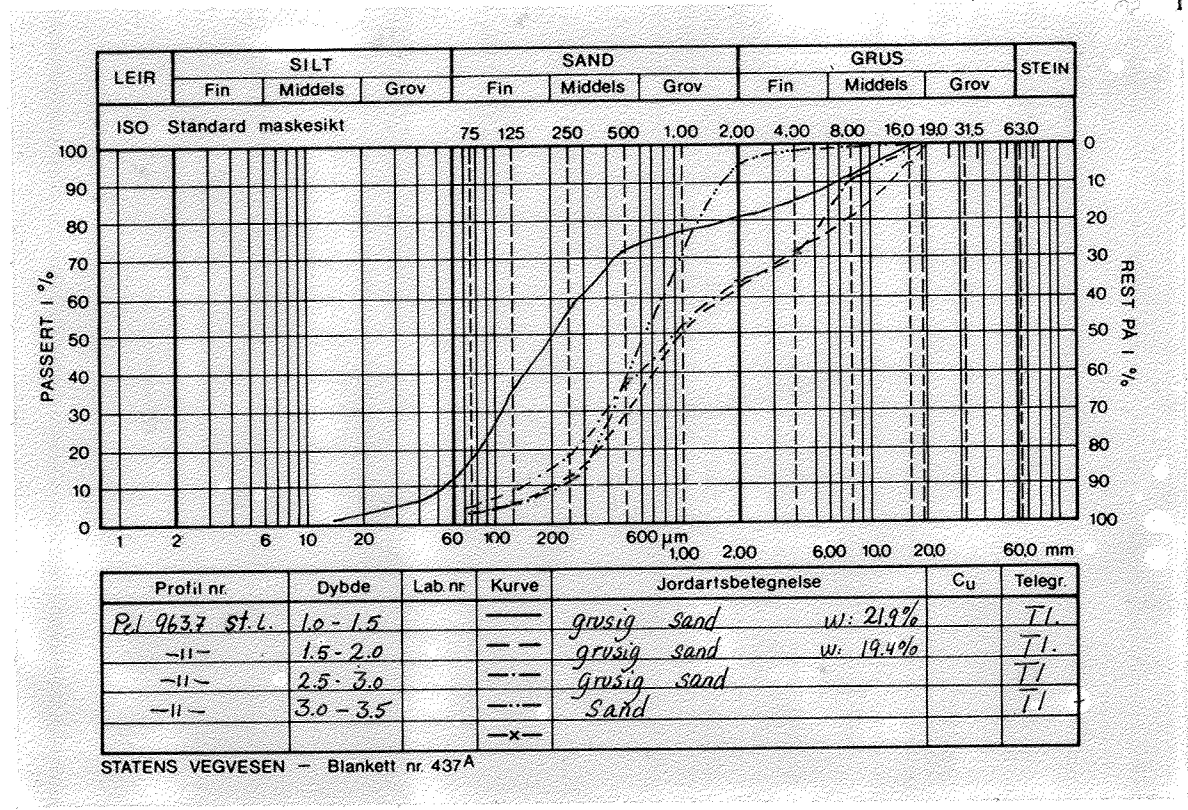 LEIR SILT SAND GRUS STEIN
Fin Middels Grov Fin Middels Grov Fin Middels Grov
ISO Standard maskesikt 75 125 250 500 1.00 2.00 4.00 8.00 16.0 19.0 31.5 63.0
100 0
90 10
80 20
70 30
60 40
50 50
40 60
30 70
20 80
10 90
0 100
PASSERT I %
REST PÅ I %
1 2 6 10 20 60 100 200 600 µm
1.00 2.00 6.00 10.0 20.0 60.0 mm
Profil nr. Dybde Lab. nr. Kurve Jordartsbetegnelse Cu Telegr.
Pel 963.7 St. L. 1.0 - 1.5 grusig sand w: 21.9% T1.
—11— 1.5 - 2.0 — — grusig sand w: 19.4% T1.
—11— 2.5 - 3.0 —·— grusig sand T1
—11— 3.0 - 3.5 —··— Sand T1
—x—
STATENS VEGVESEN — Blankett nr. 437A